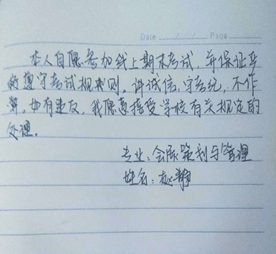 Date / / Page
本人自愿参加线上期末考试，并保证严
格遵守考试规则，讲诚信，守考纪，不作
弊，如有违反，我愿意接受学校有关规定的
处理。
专业：会展策划与管理
姓名：赵